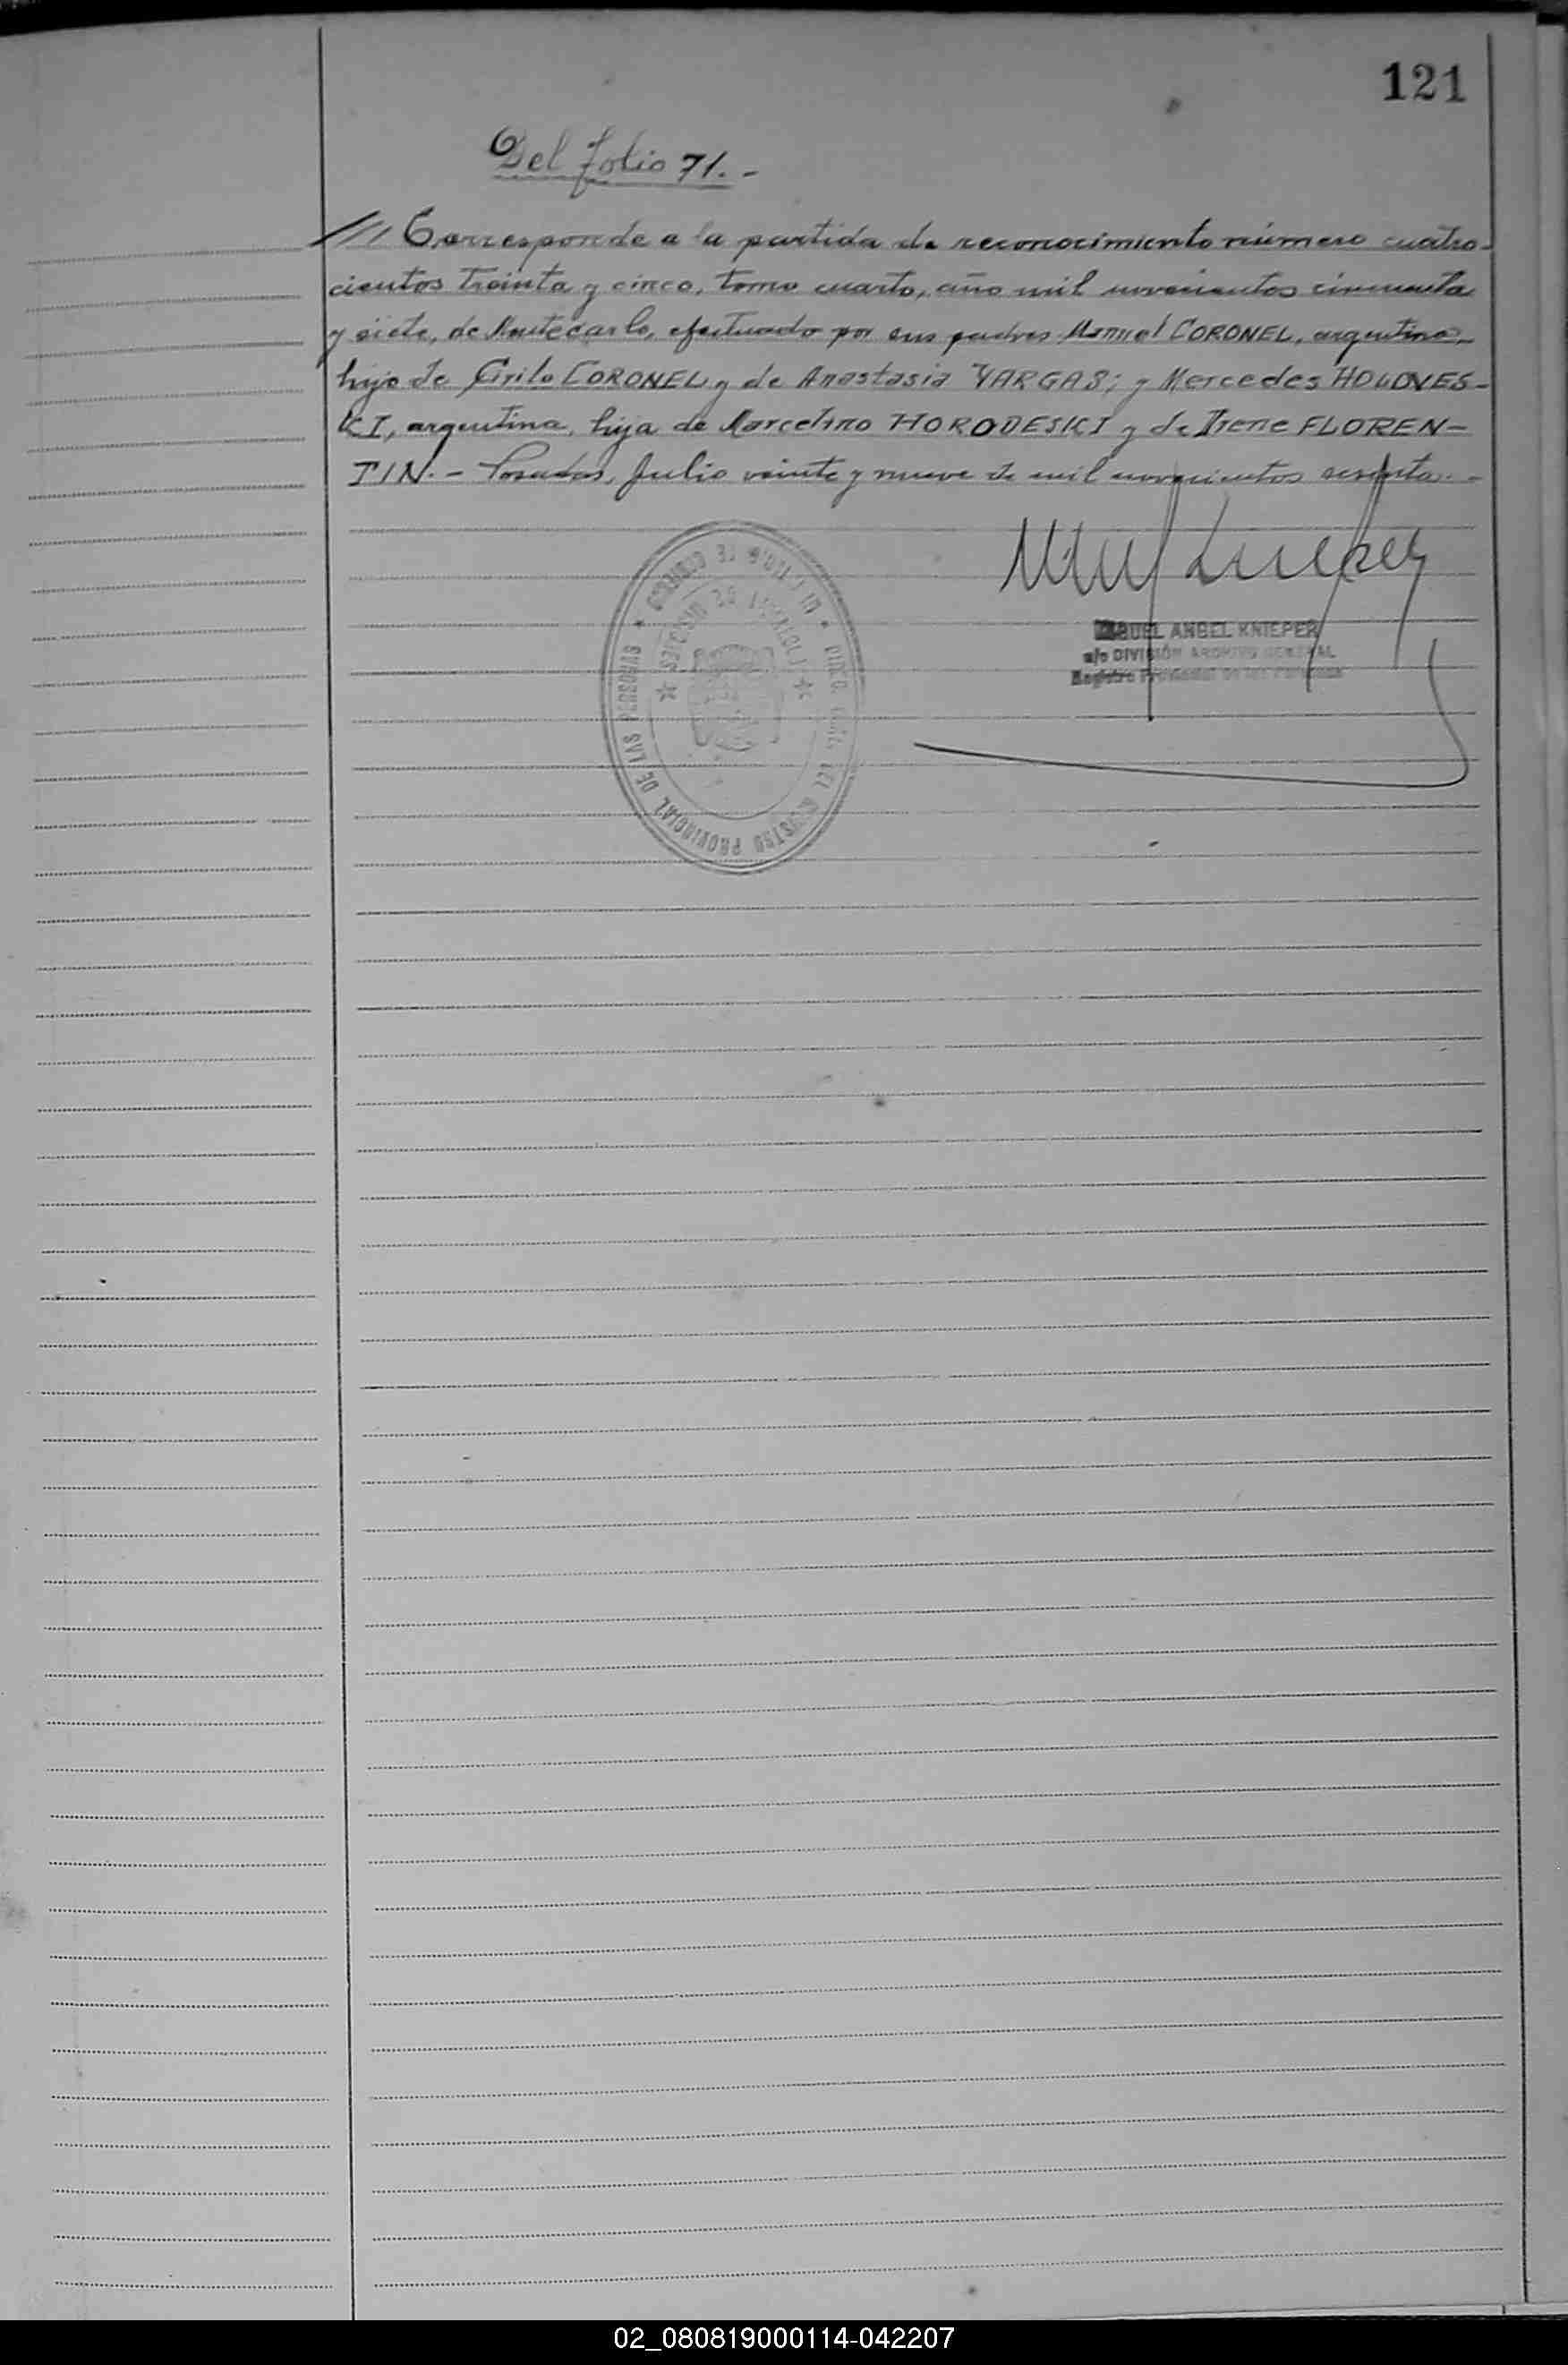 121
Del folio 71.-
/// Corresponde a la partida de reconocimiento número cuatro-
cientos treinta y cinco, tomo cuarto, año mil novecientos cincuenta
y siete, de Montecarlo, efectuado por sus padres Manuel CORONEL, argentino,
hijo de Cirilo CORONEL y de Anastasia VARGAS; y Mercedes HOLOVES-
KI, argentina, hija de Marcelino HORODESKI y de Irene FLOREN-
TIN.- Posadas, Julio veinte y nueve de mil novecientos sesenta.-
MIGUEL ANGEL KNIEPER
a/c DIVISIÓN ARCHIVO GENERAL
Registro Provincial de las Personas
REGISTRO PROVINCIAL DE LAS PERSONAS
02_080819000114-042207